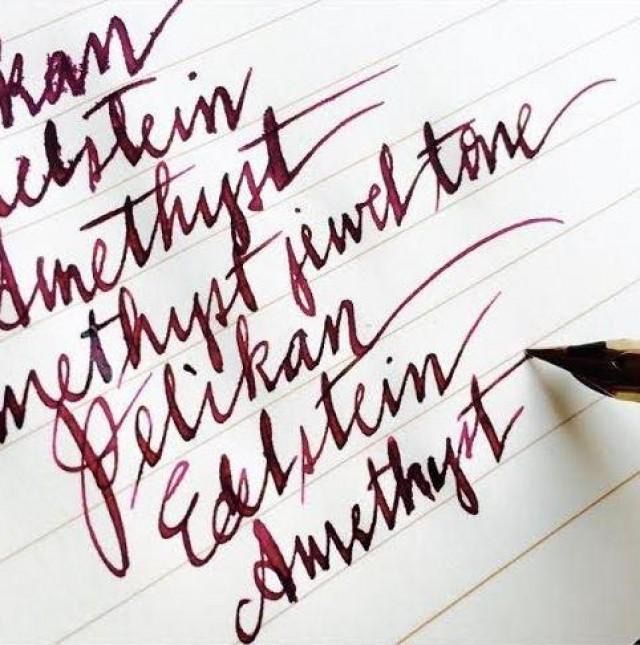 kan
delstein
Amethyst
methyst jewel tone
Pelikan
Edelstein
Amethyst